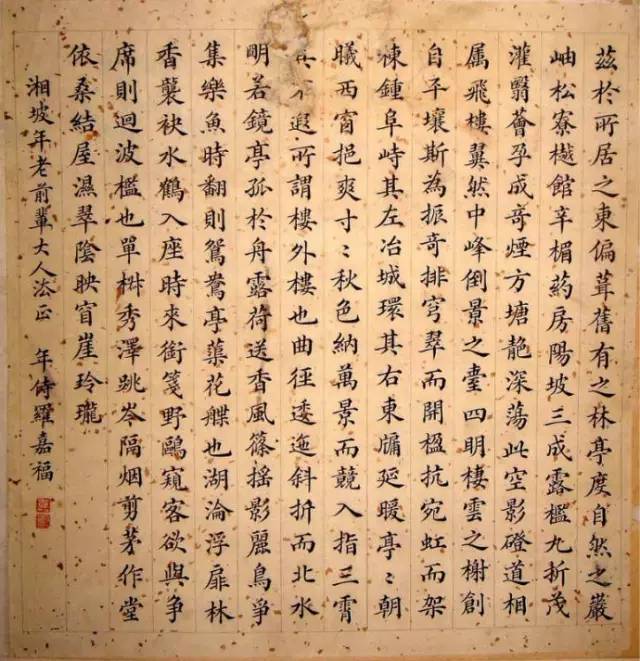 茲於所居之東偏葺舊有之林亭度自然之巖
岫松寮樾館辛楣葯房陽坡三成露檻九折茂
灌翳薈孕成奇煙方塘艶深蕩此空影磴道相
属飛樓翼然中峰倒景之臺四明棲雲之榭創
自平壤斯為振奇排穹翠而開楹抗宛虹而架
棟鍾阜峙其左冶城環其右東牖延暖亭〻朝
曦西窗挹爽寸〻秋色納萬景而競入指三霄
不遐所謂樓外樓也曲徑逶迤斜折而北水
明若鏡亭孤於舟露荷送香風篠摇影麗鳥爭
集樂魚時翻則鴛鴦亭蕖花舫也湖淪浮扉林
香襲袂水鶴入座時來銜箋野鷗窺客欲與爭
席則迴波檻也單椒秀澤跳岑隔烟剪茅作堂
依桑結屋濕翠陰映窅崖玲瓏
湘坡年老前輩大人法正 年侍羅嘉福